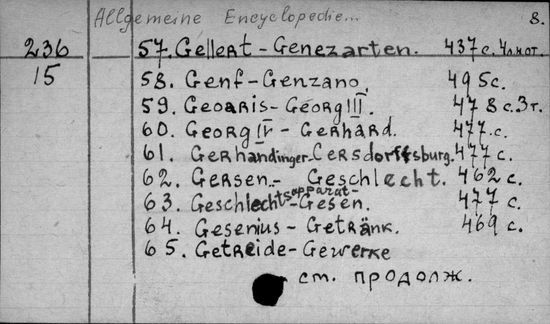 Allgemeine Encyclopedie... 8.
236 57. Gellert - Genezarten. 437 с. 4л нот.
15 58. Genf - Genzano. 495 с.
59. Geoaris - Georg III. 478 с. 3 т.
60. Georg IV - Gerhard. 477 с.
61. Gerhardinger - Cersdorffsburg. 477 с.
62. Gersen - Geschlecht. 462 с.
63. Geschlechtsapparat - Gesen. 477 с.
64. Gesenius - Getränk. 469 с.
65. Getreide - Gewerke
см. продолж.